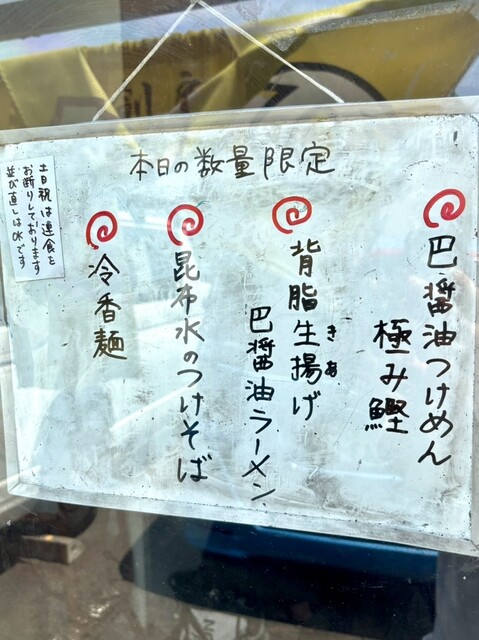 本日の数量限定
巴醤油つけめん
極み鰹
背脂生揚げ
きあ
巴醤油ラーメン
昆布水のつけそば
冷香麺
土日祝は連食を
お断りしております
並び直しはOKです